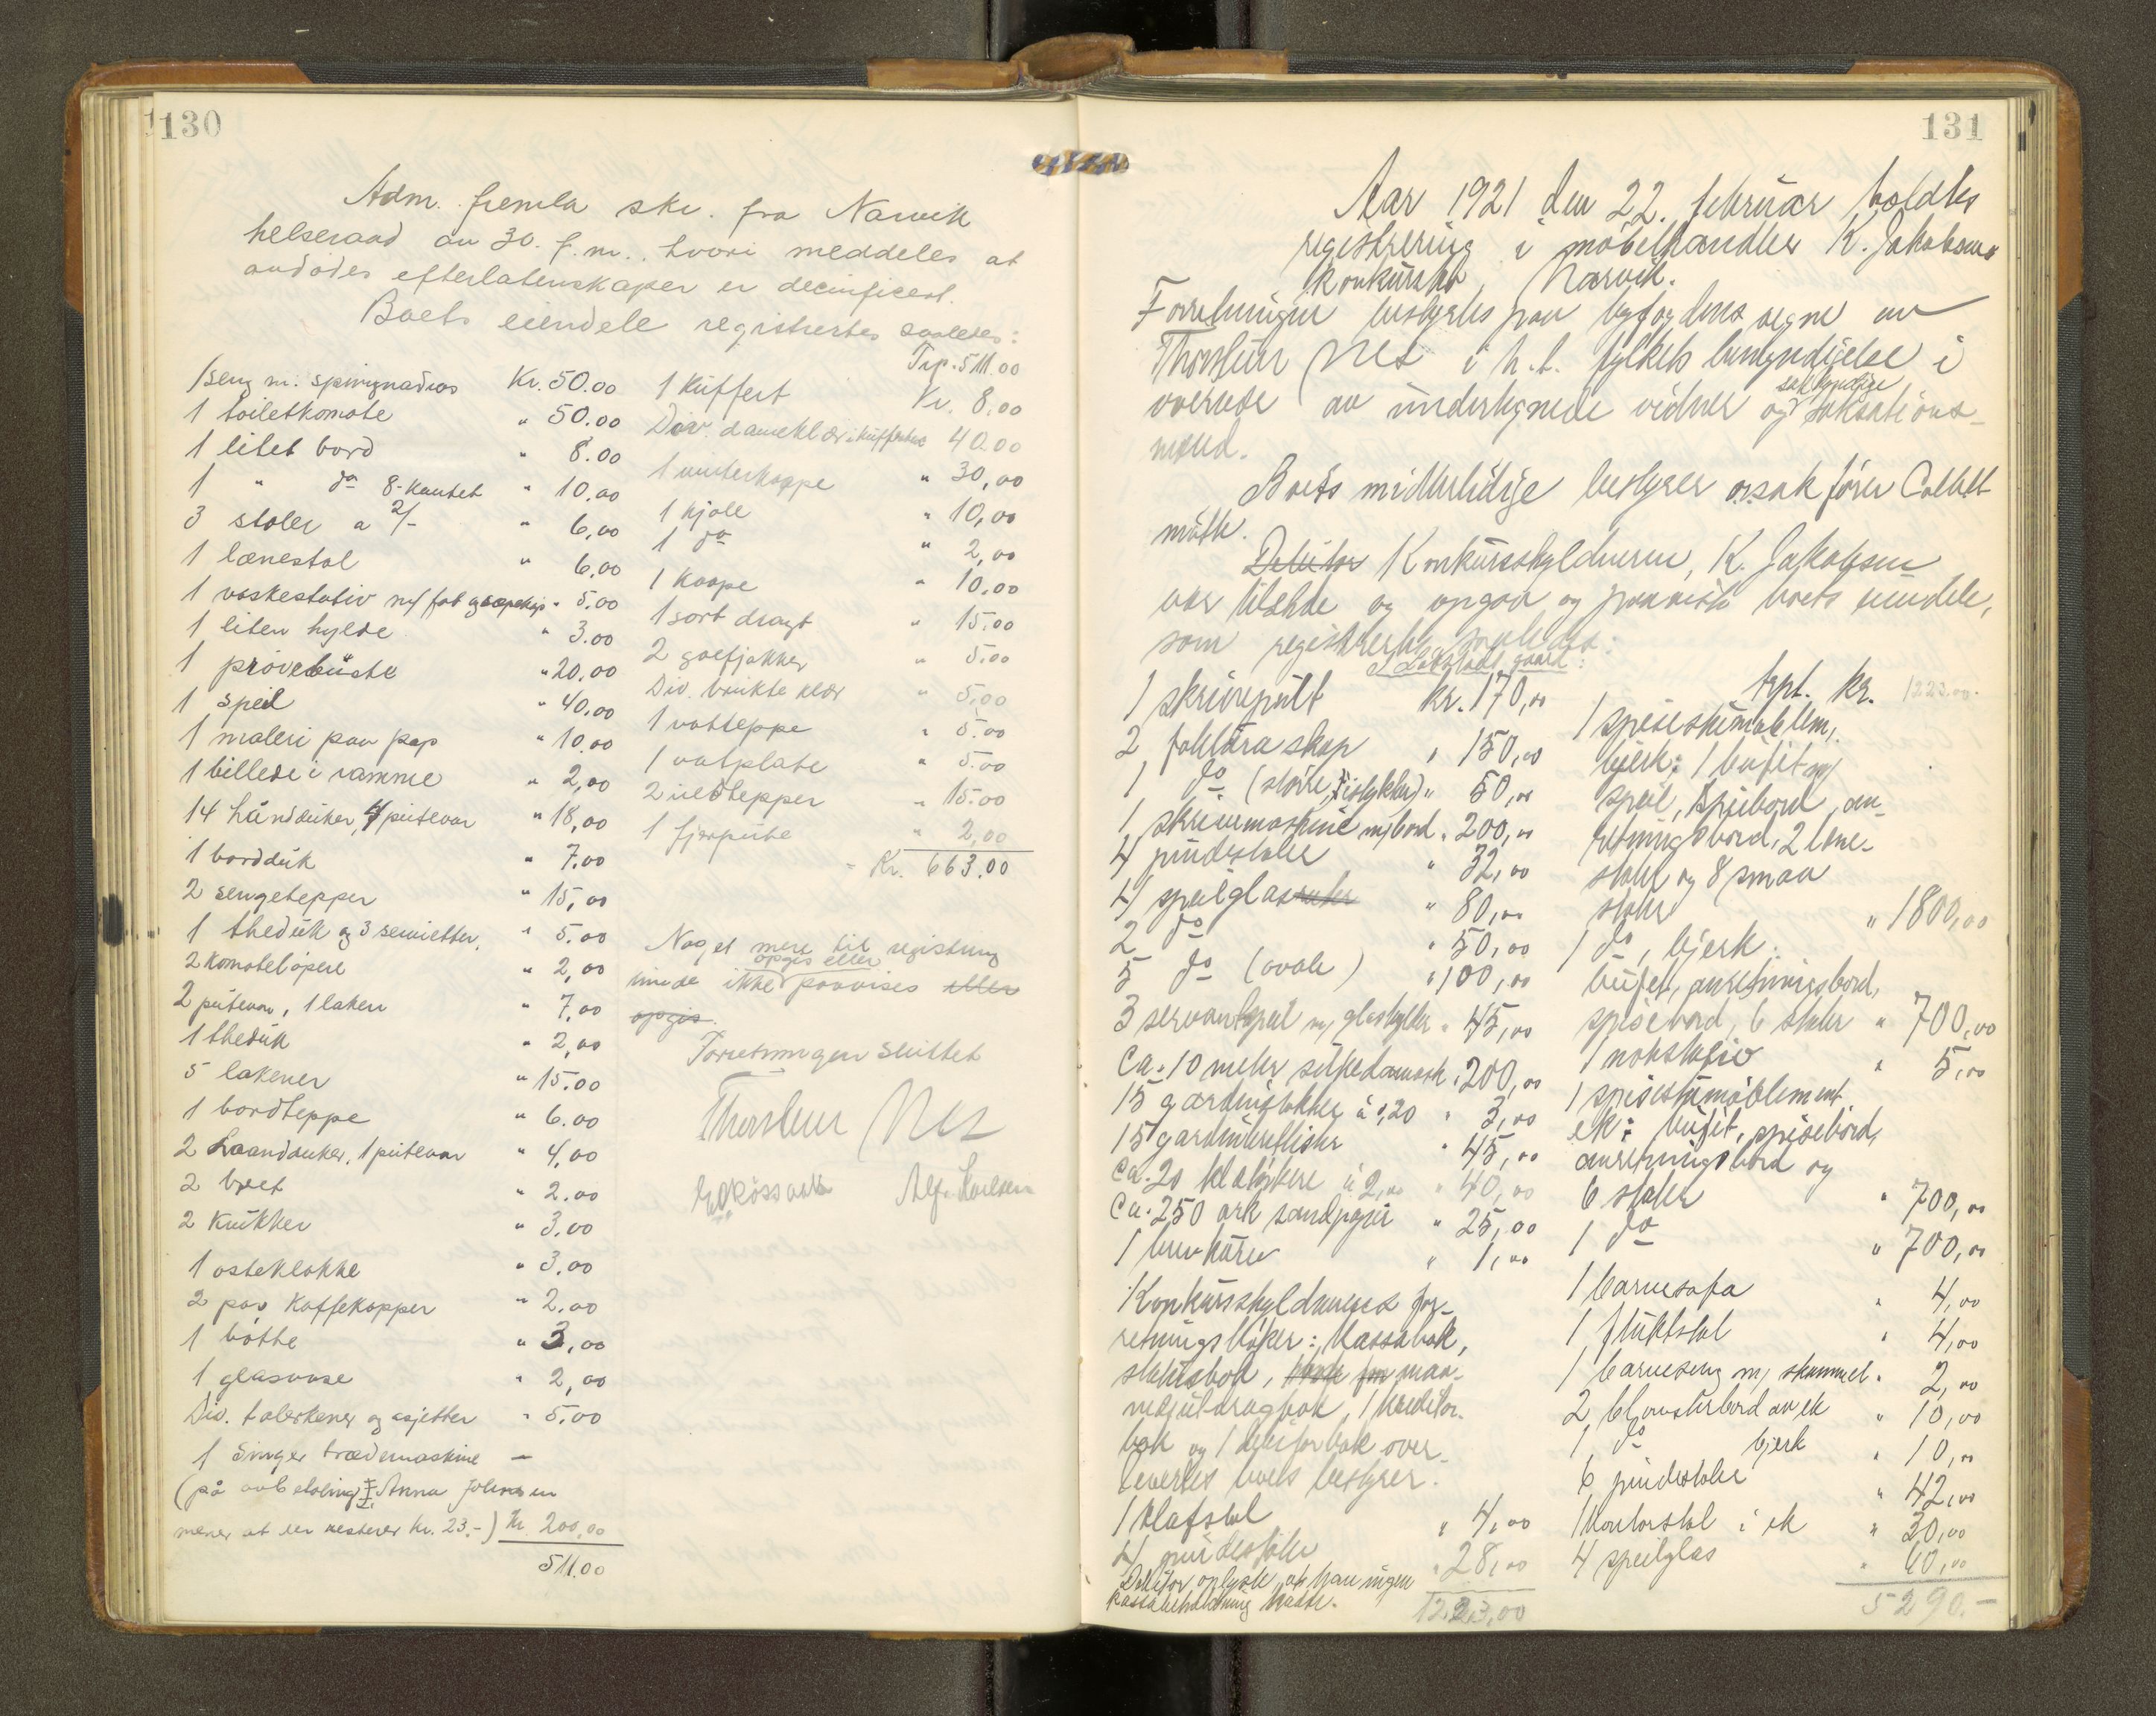 130
Adm. fremla skr. fra Narvik
helseraad av 30. f.m., hvori meddeles at
avdødes efterlatenskaper er decinficert.
Boets eiendele registrertes saaledes:
1 seng m. springmadras Kr. 50.00
1 toiletkomode " 50.00
1 litet bord " 8.00
1 " do 8-kantet " 10,00
3 stoler a 2/- " 6,00
1 lænestol " 6,00
1 vaskestativ m/ fat og sæpekop " 5.00
1 liten hylde " 3.00
1 prøvebüste " 20.00
1 speil " 40,00
1 maleri paa pap " 10.00
1 billede i ramme " 2,00
14 hånddüker, 4 pütevar " 18,00
1 borddük " 7.00
2 sengetepper " 15,00
1 thedük og 3 servietter, " 5.00
2 komoteløpere " 2,00
2 pütevar, 1 laken " 7,00
1 thedük " 2,00
5 lakener " 15.00
1 bordteppe " 6.00
2 haandduker, 1 pütevar " 4,00
2 bret " 2.00
2 krükker " 3.00
1 osteklokke " 3,00
2 par kaffekopper " 2.00
1 bøtte " 3,00
1 glasvase " 2,00
Div. talerkener og asjetter " 5.00
1 Singer trædemaskine —
(på avbetaling Anna Johnsen
mener at der resterer kr. 23.-) Kr. 200,00
511.00
Trp. 511.00
1 küffert Kr. 8.00
Div. dameklær i küfferten 40.00
1 vinterkaape " 30,00
1 kjole " 10,00
1 do " 2,00
1 kaape " 10.00
1 sort dragt " 15.00
2 golfjakker " 5.00
Div. brükte klær " 5,00
1 vatteppe " 5.00
1 vatplate " 5.00
2 üldtepper " 15.00
1 fjærpüte " 2,00
Kr. 663.00
Noget mere til registrering
opgis eller
kunde ikke paavises eller
opgis.
Forretningen sluttet
Thorsteinn Nes
Alf. Karlsen
131
Aar 1921 den 22. februar holdtes
registrering i møbelhandler K. Jakobsens
konkursbo, Narvik.
Forretningen bestyrtes paa byfogdens vegne av
Thorsteinn Nes i h.t. fylkets bemyndigelse i
sakkyndige
overvær av undertegnede vidner og taksations-
mænd.
Boets midlertidige bestyrer o.r.sakfører Collett
møtte.
Debitor Konkursskyldneren, K. Jakobsen
var tilstede og opgav og paaviste boets eiendele,
som registrertes saaledes:
1 skrivepült kr. 170,00
2 faktura skap " 150,00
1 do (større, i stykker) " 50,00
1 skrivemaskine m/bord " 200,00
4 pindestoler " 32,00
4 speilglas " 80,00
2 do " 50,00
5 do (ovale) " 100,00
3 servantspeil m/ glashylder " 45,00
Ca. 10 meter silkedamask " 200,00
15 gardinstokker à 0,20 " 3,00
15 " 45,00
Ca. 20 à 2,00 " 40,00
Ca. 250 ark sandpapir " 25,00
1 brevkürv " 1,00
Konkursskyldnerens for-
retningsbøker: Kassabok,
statusbok, maa-
nedsutdragbok, 1 kreditor-
bok og 1 debitorbok over-
levertes boets bestyrer.
1 klafstol " 4,00
4 pindestoler " 28,00
Debitor oplyste, at han ingen
kassabeholdning hadde.
1223,00
trpt. kr. 1223.00.
1 spisestümøblem.,
bjerk: 1 büfet m/
speil, spisebord, an-
retningsbord, 2 lene-
stoler og 8 smaa
stoler " 1800,00
1 do, bjerk:
büfet, anretningsbord,
spisebord, 6 stoler " 700,00
1 nokstativ " 5,00
1 spisestümøblement
ek: büfet, spisebord,
anretningsbord og
6 stoler " 700,00
1 do " 700,00
1 barnesofa " 4,00
1 flüktstol " 4,00
1 barneseng m/ skammel " 2,00
2 blomsterbord av ek " 10,00
1 do bjerk " 10,00
6 pindestoler " 42,00
1 kontorstol i ek " 30,00
4 speilglas " 60,00
5290.-